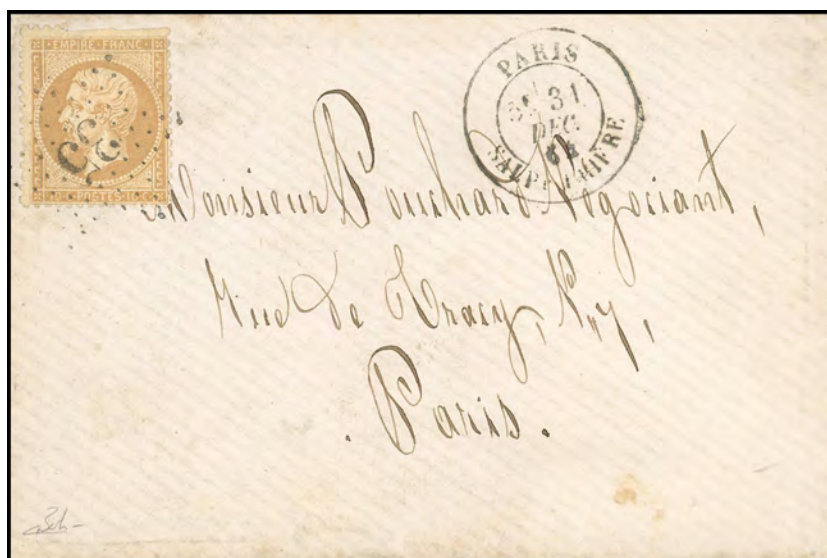 EMPIRE FRANC
POSTES
35
PARIS
31
DEC
64
SALPÊTRIÈRE
Monsieur Pouchard Négociant,
Rue de Tracy, N. 7,
Paris.